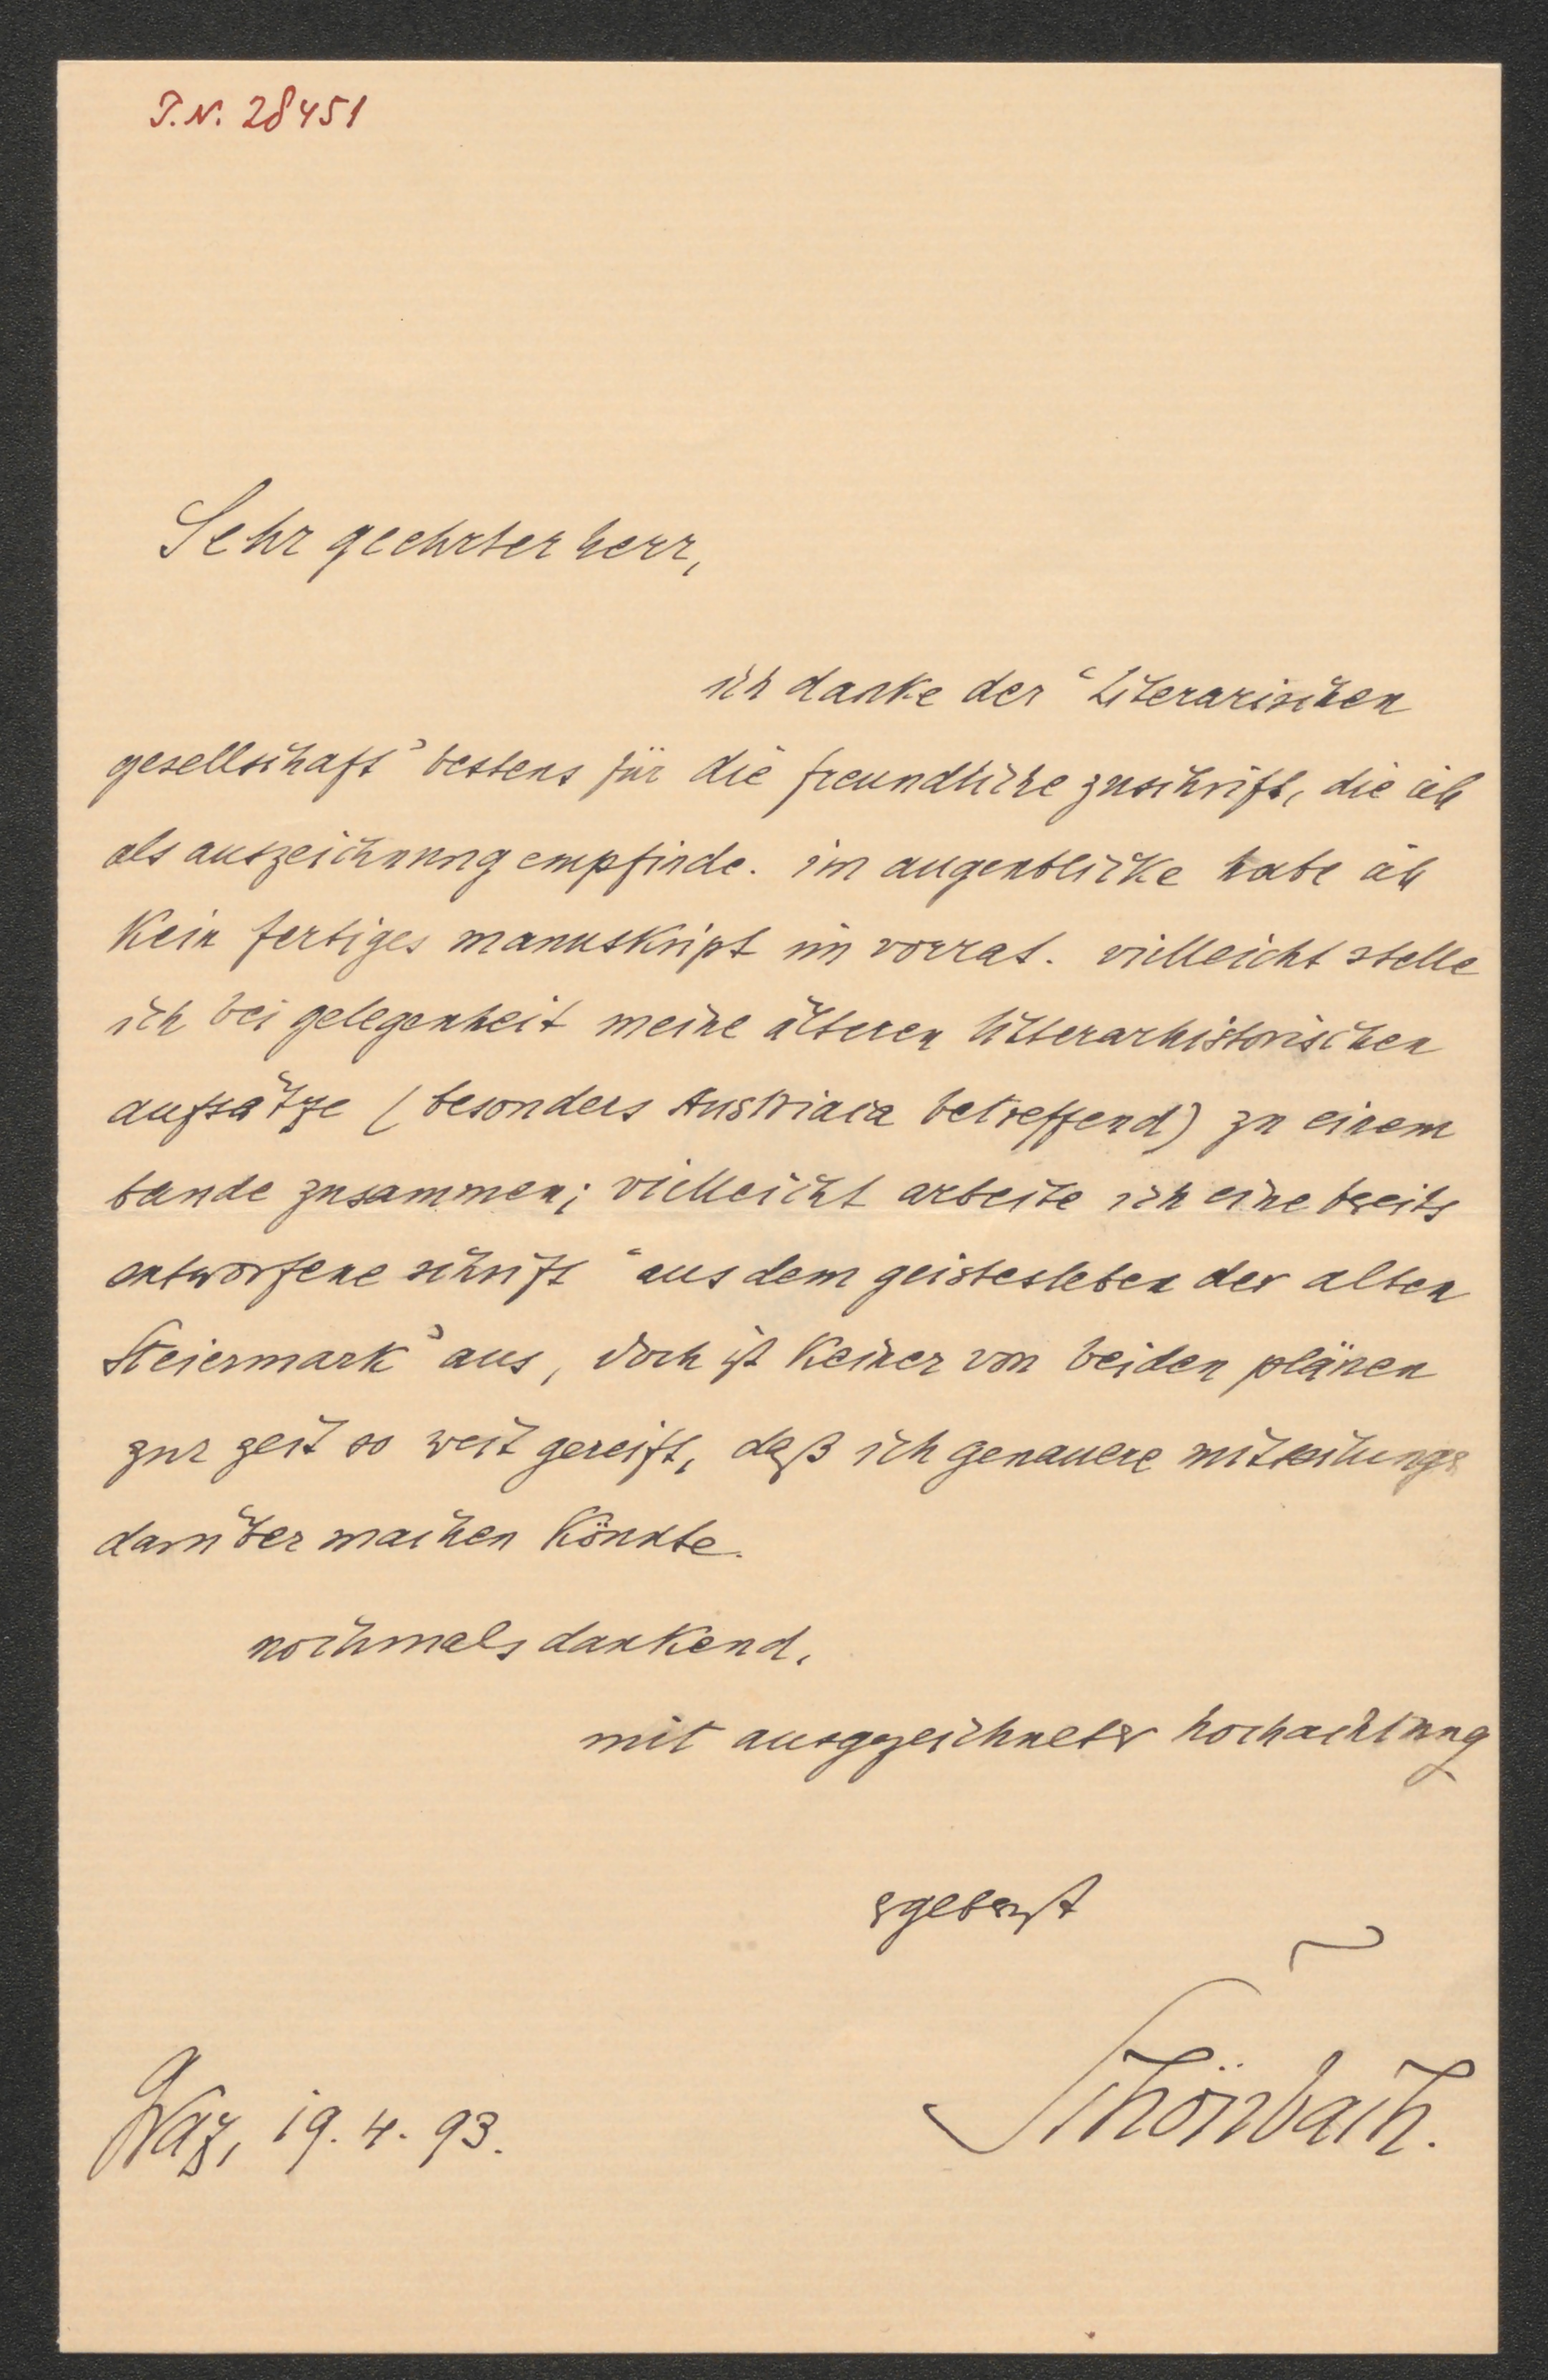 I.N. 28451
Sehr geehrter herr,
ich danke der "Literarischen
gesellschaft" bestens für die freundliche zuschrift, die ich
als auszeichnung empfinde. im augenblicke habe ich
kein fertiges manuskript im vorrat. vielleicht stelle
ich bei gelegenheit meine älteren litterarhistorischen
aufsätze (besonders Austriaca betreffend) zu einem
bande zusammen; vielleicht arbeite ich eine bereits
entworfene schrift "aus dem geistesleben der alten
Steiermark" aus, doch ist keiner von beiden plänen
zur zeit so weit gereift, daß ich genauere mitteilunge
darüber machen könnte.
nochmals dankend,
mit ausgezeichneter hochachtung
ergebenst
Schönbach.
Graz, 19. 4. 93.